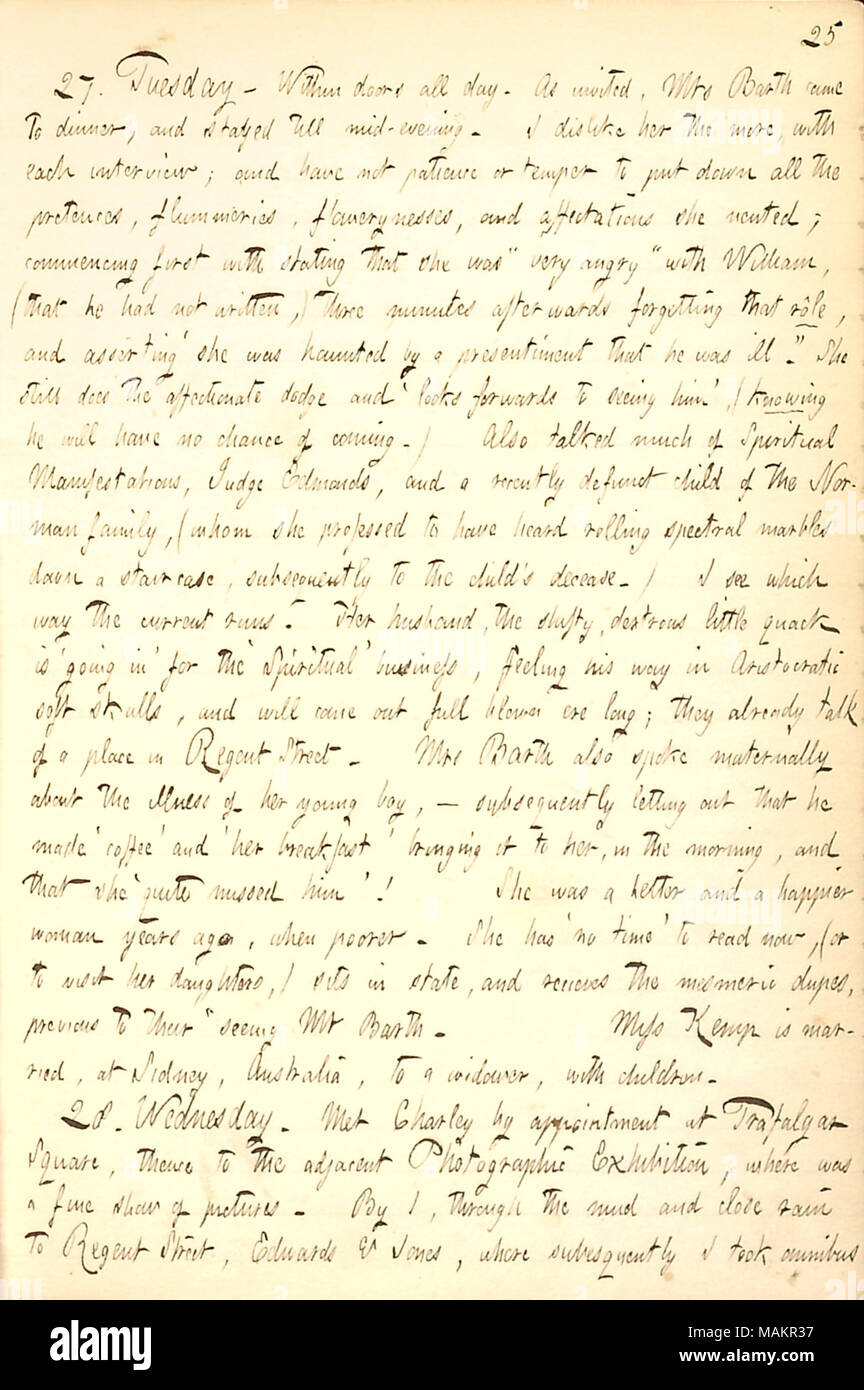 25
27. Tuesday - Within doors all day. As invited, Mrs Barth came
to dinner, and stayed till mid-evening. I dislike her the more, with
each interview; and have not patience or temper to put down all the
pretences, flummeries, flowerynesses, and affectations she vented;
commencing first with stating that she was "very angry" with William,
(that he had not written,) three minutes afterwards forgetting that rôle,
and asserting 'she was haunted by a presentiment that he was ill." She
still does the affectionate dodge and 'looks forwards to seeing him', (knowing
he will have no chance of coming.) Also talked much of Spiritual
Manifestations, Judge Edmonds, and a recently defunct child of the Nor-
man family, (whom she professed to have heard rolling spectral marbles
down a staircase, subsequently to the child's decease.) I see which
way the current runs. Her husband, the shifty, dextrous little quack
is 'going in' for the 'Spiritual' business, feeling his way in Aristocratic
soft skulls, and will come out full blown ere long; they already talk
of a place in Regent Street. Mrs Barth also spoke maternally
about the illness of her young boy, - subsequently letting out that he
made 'coffee' and 'her breakfast' bringing it to her, in the morning, and
that she 'quite missed him'! She was a better and a happier
woman years ago, when poorer. She has 'no time' to read now, (or
to visit her daughters,) sits in state, and receives the mesmeric dupes,
previous to their "seeing Mr Barth. Miss Kemp is mar-
ried, at Sidney, Australia, to a widower, with children.
28. Wednesday. Met Charley by appointment at Trafalgar
Square, thence to the adjacent Photographic Exhibition, where was
a fine show of pictures. By 1, through the mud and close rain
to Regent Street, Edwards & Jones, where subsequently I took omnibus
alamy
Image ID: MAKR37
www.alamy.com